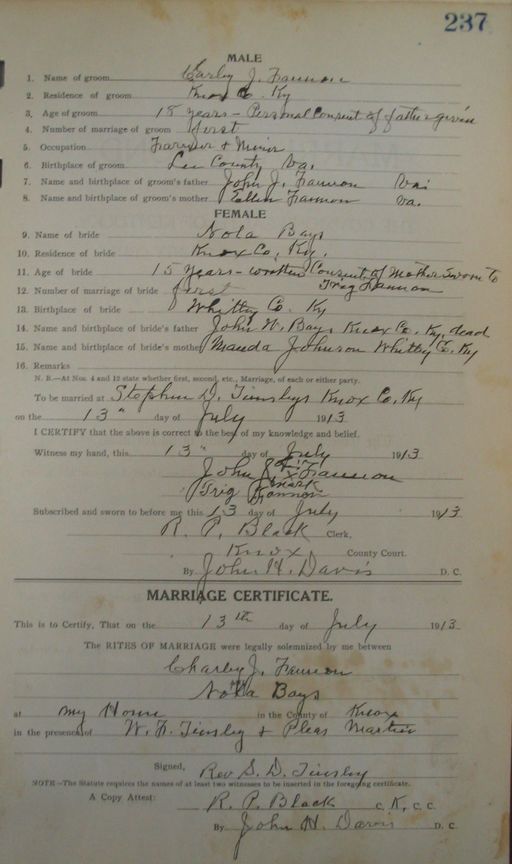 237
MALE
1. Name of groom Carley J. Fannon
2. Residence of groom Knox Co. Ky
3. Age of groom 18 years - Personal Consent of father given
4. Number of marriage of groom first
5. Occupation Farmer & Miner
6. Birthplace of groom Lee County Va.
7. Name and birthplace of groom's father John J. Fannon Va.
8. Name and birthplace of groom's mother Ellen Fannon Va.
FEMALE
9. Name of bride Nola Bays
10. Residence of bride Knox Co, Ky.
11. Age of bride 15 years - written Consent of Mother sworn to
12. Number of marriage of bride first Trig Fannon
13. Birthplace of bride Whitley Co. Ky
14. Name and birthplace of bride's father John W. Bays Knox Co. Ky. dead
15. Name and birthplace of bride's mother Manda Johnson Whitley Co. Ky
16. Remarks
N. B.—At Nos. 4 and 12 state whether first, second, etc., Marriage, of each or either party.
To be married at Stephen D. Tinsleys Knox Co. Ky
on the 13" day of July 1913
I CERTIFY that the above is correct to the best of my knowledge and belief.
Witness my hand, this 13" day of July 1913
John X Fannon
mark
Trig Fannon
Subscribed and sworn to before me this 13 day of July 1913
R. P. Black Clerk,
Knox County Court.
By John H. Davis D. C.
MARRIAGE CERTIFICATE.
This is to Certify, That on the 13th day of July 1913
The RITES OF MARRIAGE were legally solemnized by me between
Charley J. Fannon
Nola Bays
at my Home in the County of Knox
in the presence of W. H. Tinsley & Pleas Martin
Signed, Rev S. D. Tinsley
NOTE—The Statute requires the names of at least two witnesses to be inserted in the foregoing certificate.
A Copy Attest: R. P. Black C. K. C. C.
By John H. Davis D. C.